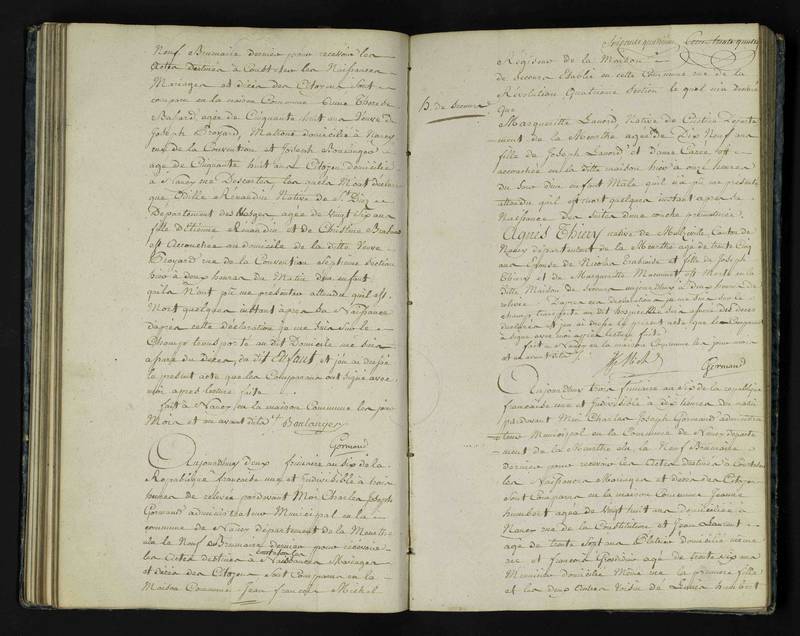 Neuf Brumaire dernier pour recevoir les
Actes Destinés à Constater les Naissances
Mariages et décès des Citoyens sont
comparu en la maison Commune Anne Therese
agée de Cinquante huit ans Veuve de
Joseph Broyard, domiciliée à Nancy
rue de la Convention et Joseph Boulanger
agé de Cinquante huit ans Citoyen domicilié
à Nancy rue Descartes, lesquels M'ont déclaré
que Odille Rénaudin Native de St. Diez
Departement des Vosges agée de vingt six ans
fille d'Etienne Rénaudin et de Christine
est accouchée au domicile de la ditte Veuve
Broyard rue de la Convention septieme Section
hier à deux heures du Matin d'un enfant
qu'ils n'ont pû me présenter attendu qu'il est
Mort quelques instant après sa Naissance
d'après cette déclaration je me suis sur le
Champ transporté au dit Domicile me suis
assuré du Décès, du dit Enfant et j'en ai dressé
le present acte que les Comparans ont signé avec
moi apres lecture faite
fait à Nancy en la maison Commune les jour
Mois et an avant dits J Boulanger
Gormand
Aujourdhuy deux frimaire an six de la
République francaise une et Indivisible à trois
heures de relevée pardevant Moi Charles Joseph
Gormand administrateur Municipal en la
commune de Nancy département de la Meurthe
élu le Neuf Brumaire dernier pour recevoir
les Actes destinés à constater les Naissances Mariages
et décès des Citoyens est Comparu en la
Maison Commune Jean françois Michel
Cent trente quatre
Régisseur de la Maison
de Secours Etablie en cette Commune rue de la
Révolution Quatrieme Section lequel m'a déclaré
h. de Secours
Que
Marguerite Native de Custine Departe
ment de la Meurthe agée de Dix Neuf ans
fille de Joseph et d'Anne est
accouchée en la ditte maison hier à onze heures
du Soir d'un enfant Mâle qu'il n'a pû me présenter
attendu qu'il est mort quelques instant apres sa
Naissance des Suites d'une couche prématurée.
Agnès Thiery native de Malzéville Canton de
Nancy département de la Meurthe agée de trente Cinq
ans Epouse de Nicolas et fille de Joseph
Thiery et de Marguerite est Morte en la
ditte Maison de secours aujourdhuy à deux heures de
relevée D'apres ces déclarations je me suis sur le
champs transporté au dit hospice me suis assuré des deces
declarés et j'en ai dressé le présent acte que le Comparant
a signé avec moi après lecture faite
fait à Nancy en la maison Commune les jour mois
et an avant dits
Michel
Gormand
Aujourdhuy trois frimaire an six de la republique
francaise une et indivisible à dix heures du matin
pardevant Moi Charles Joseph Gormand administra
teur Municipal en la Commune de Nancy departe
ment de la Meurthe élu le Neuf Brumaire
dernier pour recevoir les Actes Destinés à Constater
les Naissances Mariages et deces des Citoyens
sont Comparus en la maison Commune Jeanne
humbert agée de vingt huit ans Domiciliée à
Nancy rue de la Constitution et Jean Laurent
agé de trente sept ans Platrier domicilié même
rue et françois agé de trente six ans
Menuisier domicilié Même rue la premiere fille
et les deux autres voisin de Louis humbert